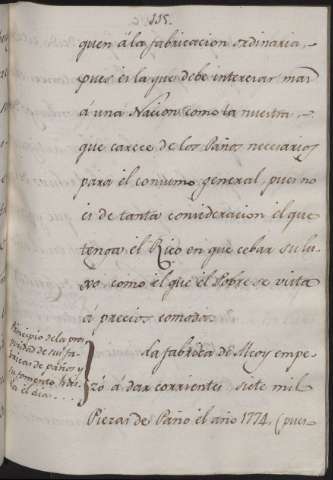 115.
quen á la fabricacion ordinaria,
pues es la que debe interesar mas
á una Nacion como la nuestra
que carece de los Paños necesarios
para el consumo general, pues no
es de tanta consideracion el que
tenga el Rico en que cebar su lu-
xo, como el que el Pobre se vista
á precios comodos.
Principio de la pros
peridad de sus fa-
bricas de paños y
su fomento has-
ta el dia....
La fabrica de Alcoy empe-
zó á dar corrientes siete mil
Piezas de Paño el año 1774, (pues